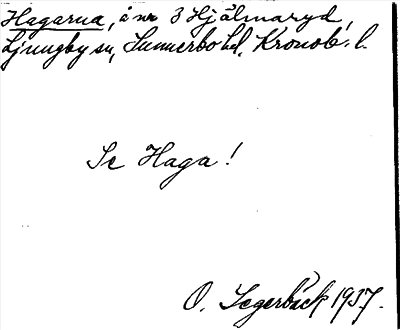 Hagarna, å nr 3 Hjälmaryd,
Ljungby sn, Sunnerbo hd, Kronob. l.
Se Haga!
O. Segerbäck 1937.